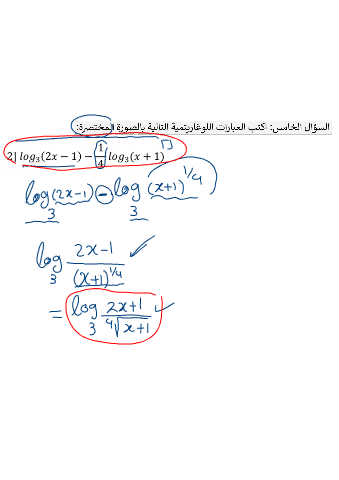 السؤال الخامس: اكتب العبارات اللوغاريتمية التالية بالصورة المختصرة:
2] log₃(2x − 1) − 1/4 log₃(x + 1)
log₃(2x-1) − log₃(x+1)^1/4
log₃ 2x-1/(x+1)^1/4
= log₃ 2x+1/⁴√x+1